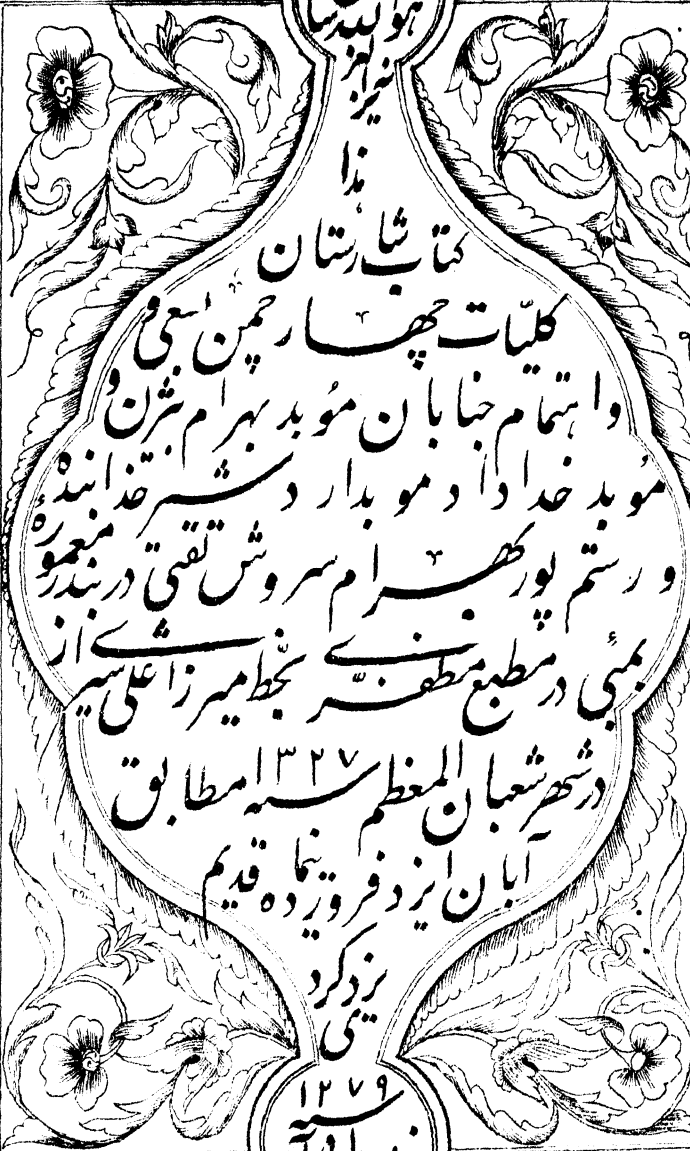 هو
نه یز
هذا
کتاب شارستان
کلیّات چهار چمن بسعی و
واهتمام جنابان مؤبد بهرام بیژن و
مؤبد خداداد موبدار دشیر خدابنده
و رستم پور بهرام سروش تفتی در بندر معموره
بمبئی در مطبع مظفّری بخّط میرزا علی شیرازی
در شهر شعبان المعظم سنه ۱۳۲۷ مطابق
آبان ایزد فروردینماه قدیم
یزدگرد
ی
سنه ۱۲۷۹